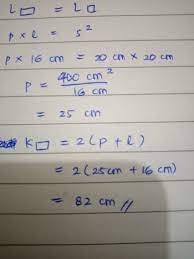 L▭ = L□
p × l = s²
p × 16 cm = 20 cm × 20 cm
p = 400 cm² / 16 cm
= 25 cm
K▭ = 2(p + l)
= 2(25cm + 16 cm)
= 82 cm //